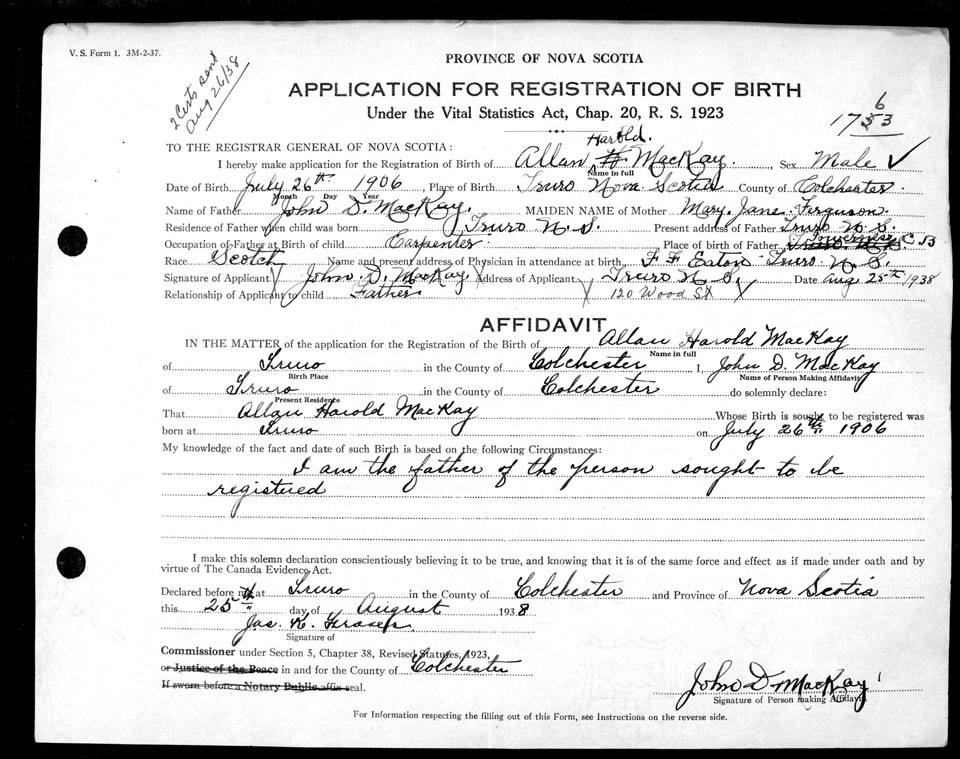 V. S. Form 1. 3M-2-37.
2 Certs sent
Aug 26/38
PROVINCE OF NOVA SCOTIA
APPLICATION FOR REGISTRATION OF BIRTH
Under the Vital Statistics Act, Chap. 20, R. S. 1923
6
17 53
TO THE REGISTRAR GENERAL OF NOVA SCOTIA:
Harold.
I hereby make application for the Registration of Birth of Allan H. MacKay. Sex Male ✓
Name in full
Date of Birth July 26th 1906 Place of Birth Truro Nova Scotia County of Colchester.
Month Day Year
Name of Father John D. MacKay. MAIDEN NAME of Mother Mary Jane Ferguson.
Residence of Father when child was born Truro N. S. Present address of Father Truro N. S.
Occupation of Father at Birth of child Carpenter. Place of birth of Father Inverness C. B
Race Scotch Name and present address of Physician in attendance at birth F. F. Eaton Truro N. S.
Signature of Applicant John D. MacKay Address of Applicant Truro N. S. Date Aug 25th 1938
Relationship of Applicant to child Father 120 Wood St
AFFIDAVIT
IN THE MATTER of the application for the Registration of the Birth of Allan Harold MacKay
Name in full
of Truro in the County of Colchester I, John D. MacKay
Birth Place Name of Person Making Affidavit
of Truro in the County of Colchester do solemnly declare:
Present Residence
That Allan Harold MacKay Whose Birth is sought to be registered was
born at Truro on July 26th 1906
My knowledge of the fact and date of such Birth is based on the following Circumstances:
I am the father of the person sought to be
registered
I make this solemn declaration conscientiously believing it to be true, and knowing that it is of the same force and effect as if made under oath and by
virtue of The Canada Evidence Act.
Declared before me at Truro in the County of Colchester and Province of Nova Scotia
this 25th day of August 1938
Jas. K. Fraser
Signature of
Commissioner under Section 5, Chapter 38, Revised Statutes, 1923,
or Justice of the Peace in and for the County of Colchester
If sworn before a Notary Public affix seal.
John D MacKay
Signature of Person making Affidavit
For Information respecting the filling out of this Form, see Instructions on the reverse side.